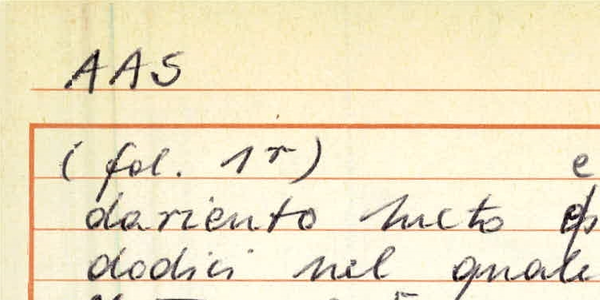 AAS
(fol. 1r) e
dariento
dodici nel quale